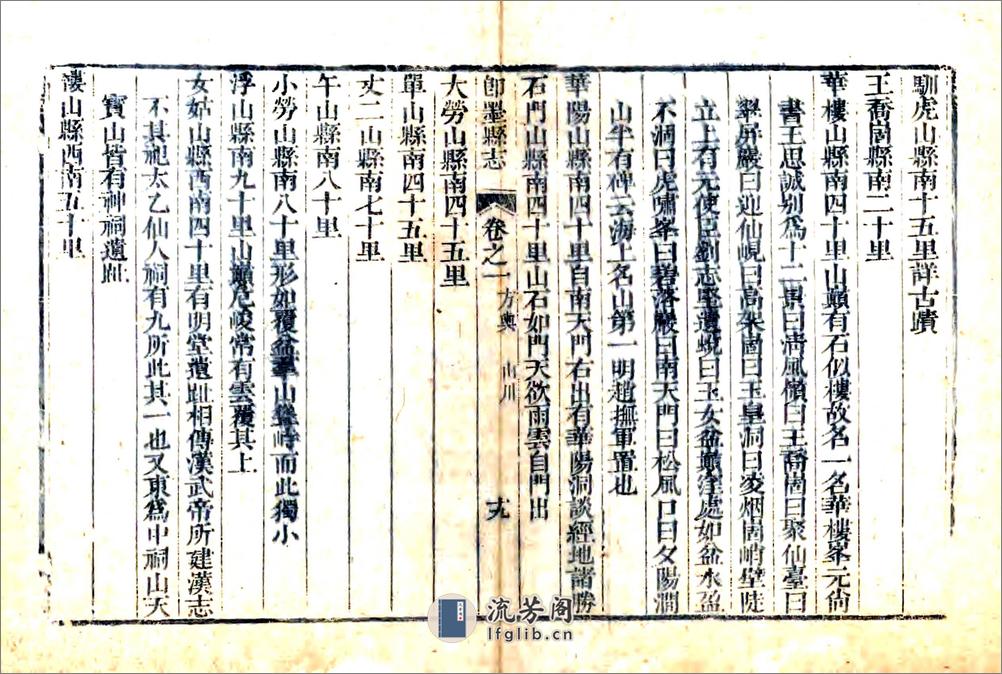 馴虎山縣南十五里詳古蹟
王喬崮縣南二十里
華樓山縣南四十里山巔有石似樓故名一名華樓峯元尙
書王思誠别爲十二景曰淸風嶺曰王喬崮曰聚仙臺曰
翠屏巖曰迎仙峴曰高架崮曰玉皇洞曰凌烟崮峭壁陡
立上有元使臣劉志堅遺蛻曰玉女盆巔窪處如盆水盈
不涸曰虎嘯峯曰碧落巖曰南天門曰松風口曰夕陽澗
山半有碑云海上名山第一明趙撫軍置也
華陽山縣南四十里自南天門右出有華陽洞談經地諸勝
石門山縣南四十里山石如門天欲雨雲自門出
卽墨縣志 卷之一 方輿 山川 十九
大勞山縣南四十五里
單山縣南四十五里
丈二山縣南七十里
午山縣南八十里
小勞山縣南八十里形如覆盆羣山聳峙而此獨小
浮山縣南九十里山巔危峻常有雲覆其上
女姑山縣西南四十里有明堂遺趾相傳漢武帝所建漢志
不其祀太乙仙人祠有九所此其一也又東爲中祠山天
寶山皆有神祠遺趾
山縣西南五十里
流芳阁
lfglib.cn